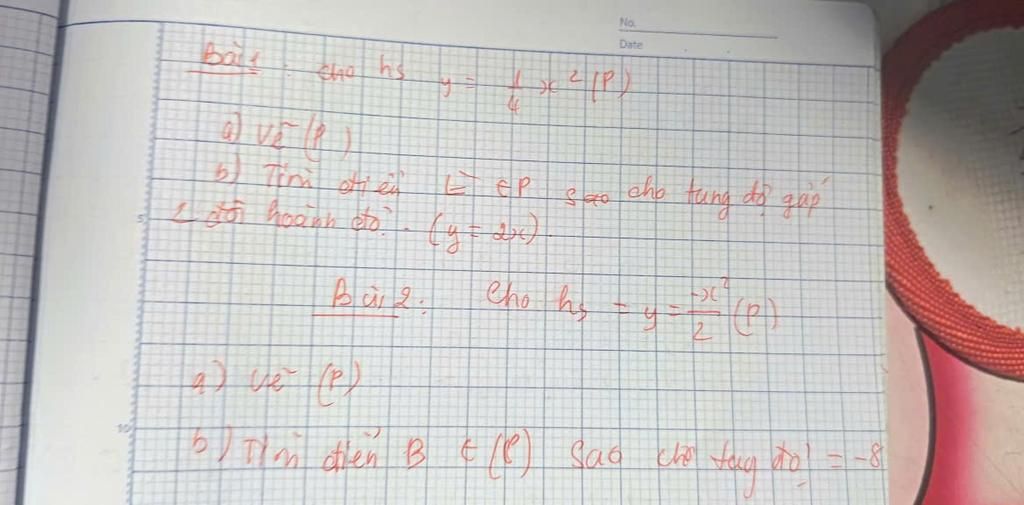 No.
Date
Bài 1: cho hs y = 1/4 x² (P)
a) Vẽ (P)
b) Tìm điểm E ∈ P sao cho tung độ gấp
5
2 đôi hoành độ. (y = 2x).
Bài 2: Cho hs = y = -x²/2 (P)
a) Vẽ (P)
10
b) Tìm điểm B ∈ (P) sao cho tug độ = -8